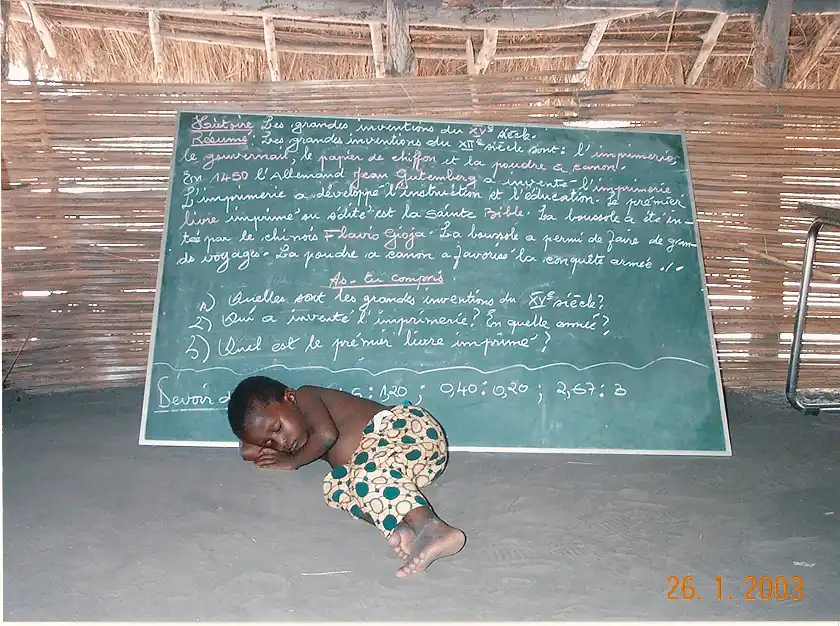 Histoire Les grandes inventions du XVe siècle.
Résumé: Les grandes inventions du XVe siècle sont: l'imprimerie,
le gouvernail, le papier de chiffon et la poudre à canon.
En 1450 l'Allemand Jean Gutemberg a inventé l'imprimerie
L'imprimerie a développé l'instruction et l'éducation. Le premier
livre imprimé ou édité est la Sainte Bible. La boussole a été in-
té par le chinois Flavio Gioja. La boussole a permi de faire de gran-
ds voyages. La poudre a canon a favorisé la conquête armée ./.
As-tu compris
1) Quelles sont les grandes inventions du XVe siècle?
2) Qui a inventé l'imprimerie? En quelle année?
3) Quel est le premier livre imprimé?
Devoir 6:1,20 ; 0,40:0,20 ; 2,67:3
26. 1. 2003